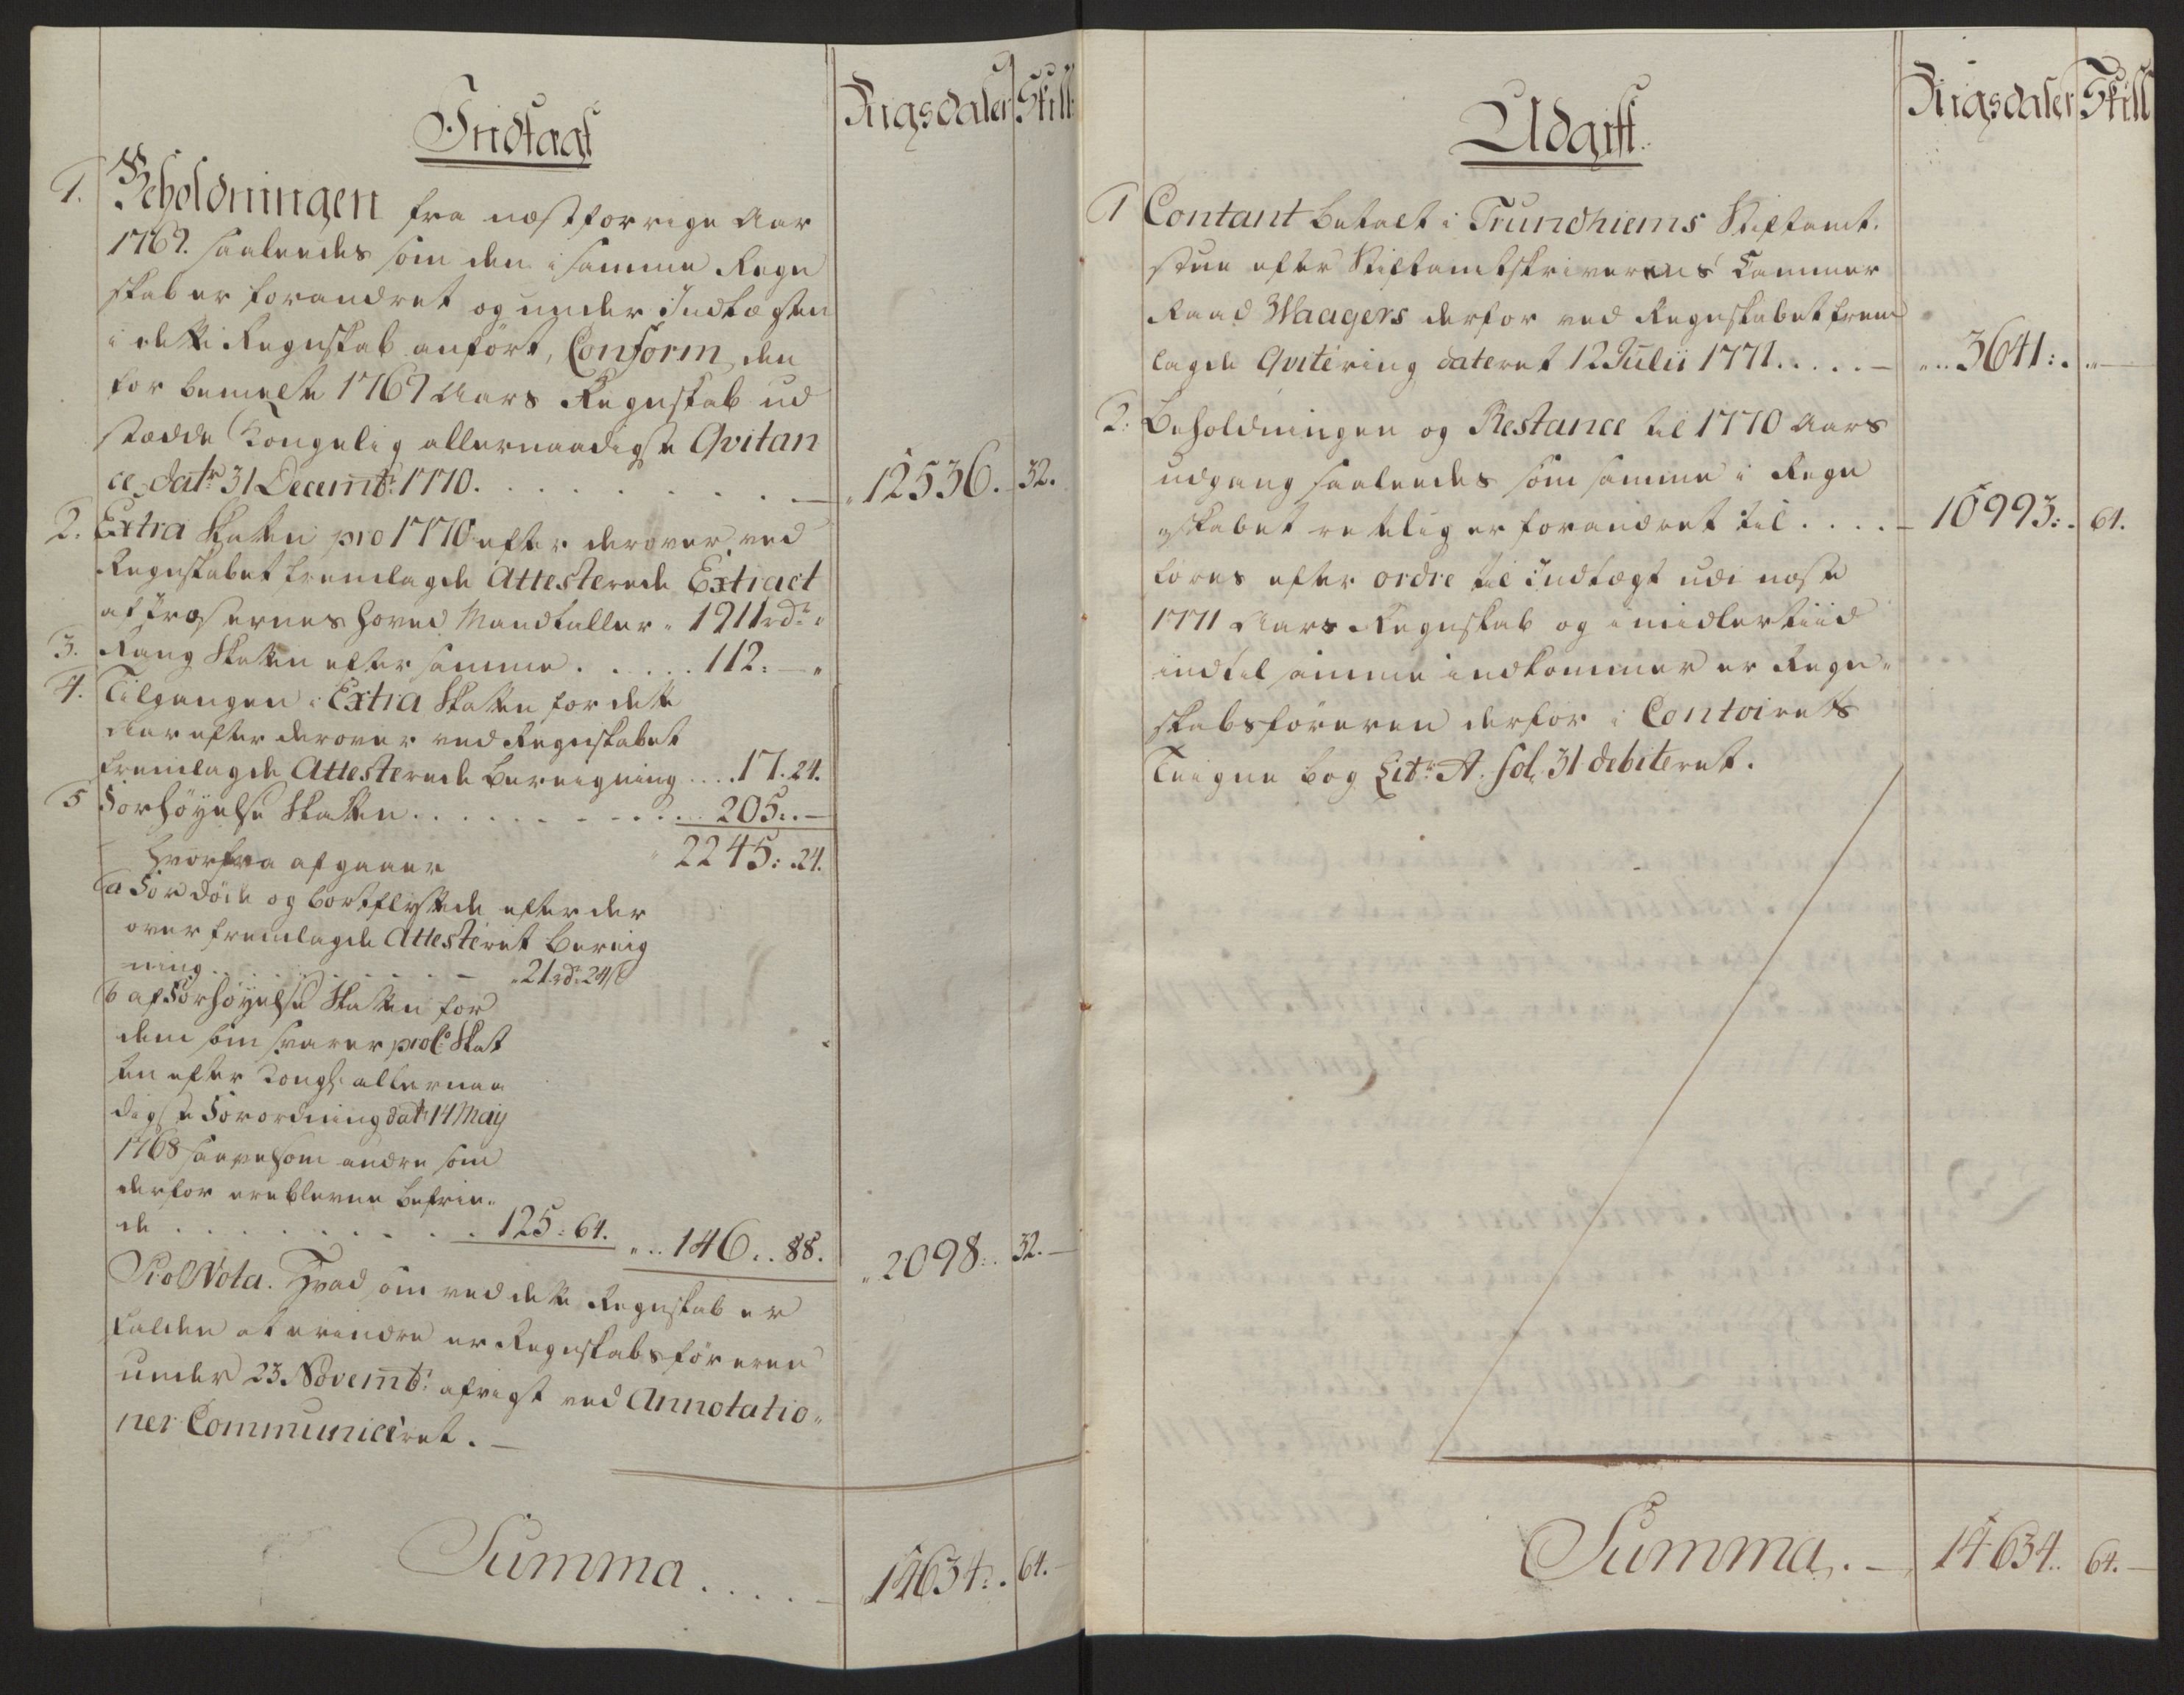 Indtægt
Rigsdaler Skill:
1. Beholdningen fra næstforrige Aar
1769. saaleedes som den i samme Regn
skab er forandret og under Indtægten
i dette Regnskab anført, Conform den
for bemelte 1769 Aars Regnskab ud
stædde Kongelig allernaadigste Qvitan
ce, datr 31 Decembr: 1770. . . . . . . . . — 12536. 32.
2. Extra Skatten pro 1770 efter derover ved
Regnskabet fremlagde Attesterede Extract
af Præsternes Hoved Mandtaller „ 1911 rdr „
3. Rang Skatten efter samme . . . . . 112: — „
4. Tilgangen i Extra Skatten for dette
Aar efter derover ved Regnskabet
fremlagde Attesterede Bereigning . . . . 17. 24.
5 Forhøyelse Skatten . . . . . . . . . 205: . —
Hvorfra afgaaer 2245: . 24.
a For døde og bortflyttede efter der
over fremlagde Attesteret Bereig
ning . . . . . . . — „ 21 rdr 24 s
b af Forhøyelse Skatten for
dem som svarer proC: Skat
ten efter Kongl: allernaa
digste Forordning dat: 14 May
1768 saavelsom andre som
derfor ere blevne befrie„
de . . . . . . . . . 125: 64. „ . . 146: . 88. „ 2098: . 32. —
Nota. Hvad som ved dette Regnskab er
falden at erindre er Regnskabsføreren
under 23. Novembr: afvigt ved Annotatio„
ner Communiceret. —
Summa . . . . — 14634: . 64. —
Udgift.
Rigsdaler Skill
1 Contant betalt i Trundhiems Stiftamt.
stue efter Stiftamtskriverens Cammer
Raad Waagers derfor ved Regnskabet frem
lagde Qvitering dateret 12 Julii 1771. . . . . — „ . . 3641: . „ —
2: Beholdningen og Restance til 1770 Aars
udgang saaleedes som samme i Regn
skabet rettelig er forandret til . . . . — 10993: . 64.
føres efter ordre til Indtægt udi næste
1771 Aars Regnskab og imidlertiid
indtil samme indkommer er Regn„
skabsføreren derfor i Contoirets
Teigne bog Litr: A. fol: 31 debiteret.
Summa. — 14634. . 64. —